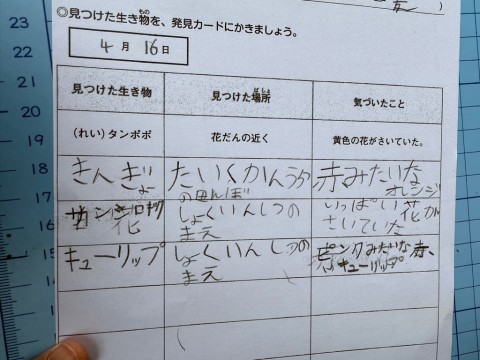 ◎見つけた生き物を、発見カードにかきましょう。
4月 16日
見つけた生き物 見つけた場所 気づいたこと
(れい)タンポポ 花だんの近く 黄色の花がさいていた。
きんぎょ たいくかんうら 赤みたいな
の田んぼ オレンジ
しょくいんしつの いっぱい花が
花 まえ さいていた
キューリップ しょくいんしつの ピンクみたいな赤、
まえ キューリップ
23
22
21
20
19
18
17
16
15